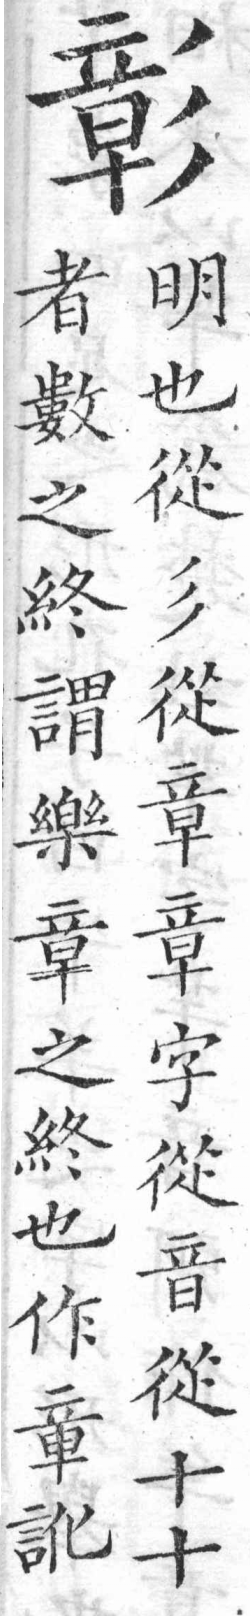 彰
明也從彡從章章字從音從十十
者數之終謂樂章之終也作章訛